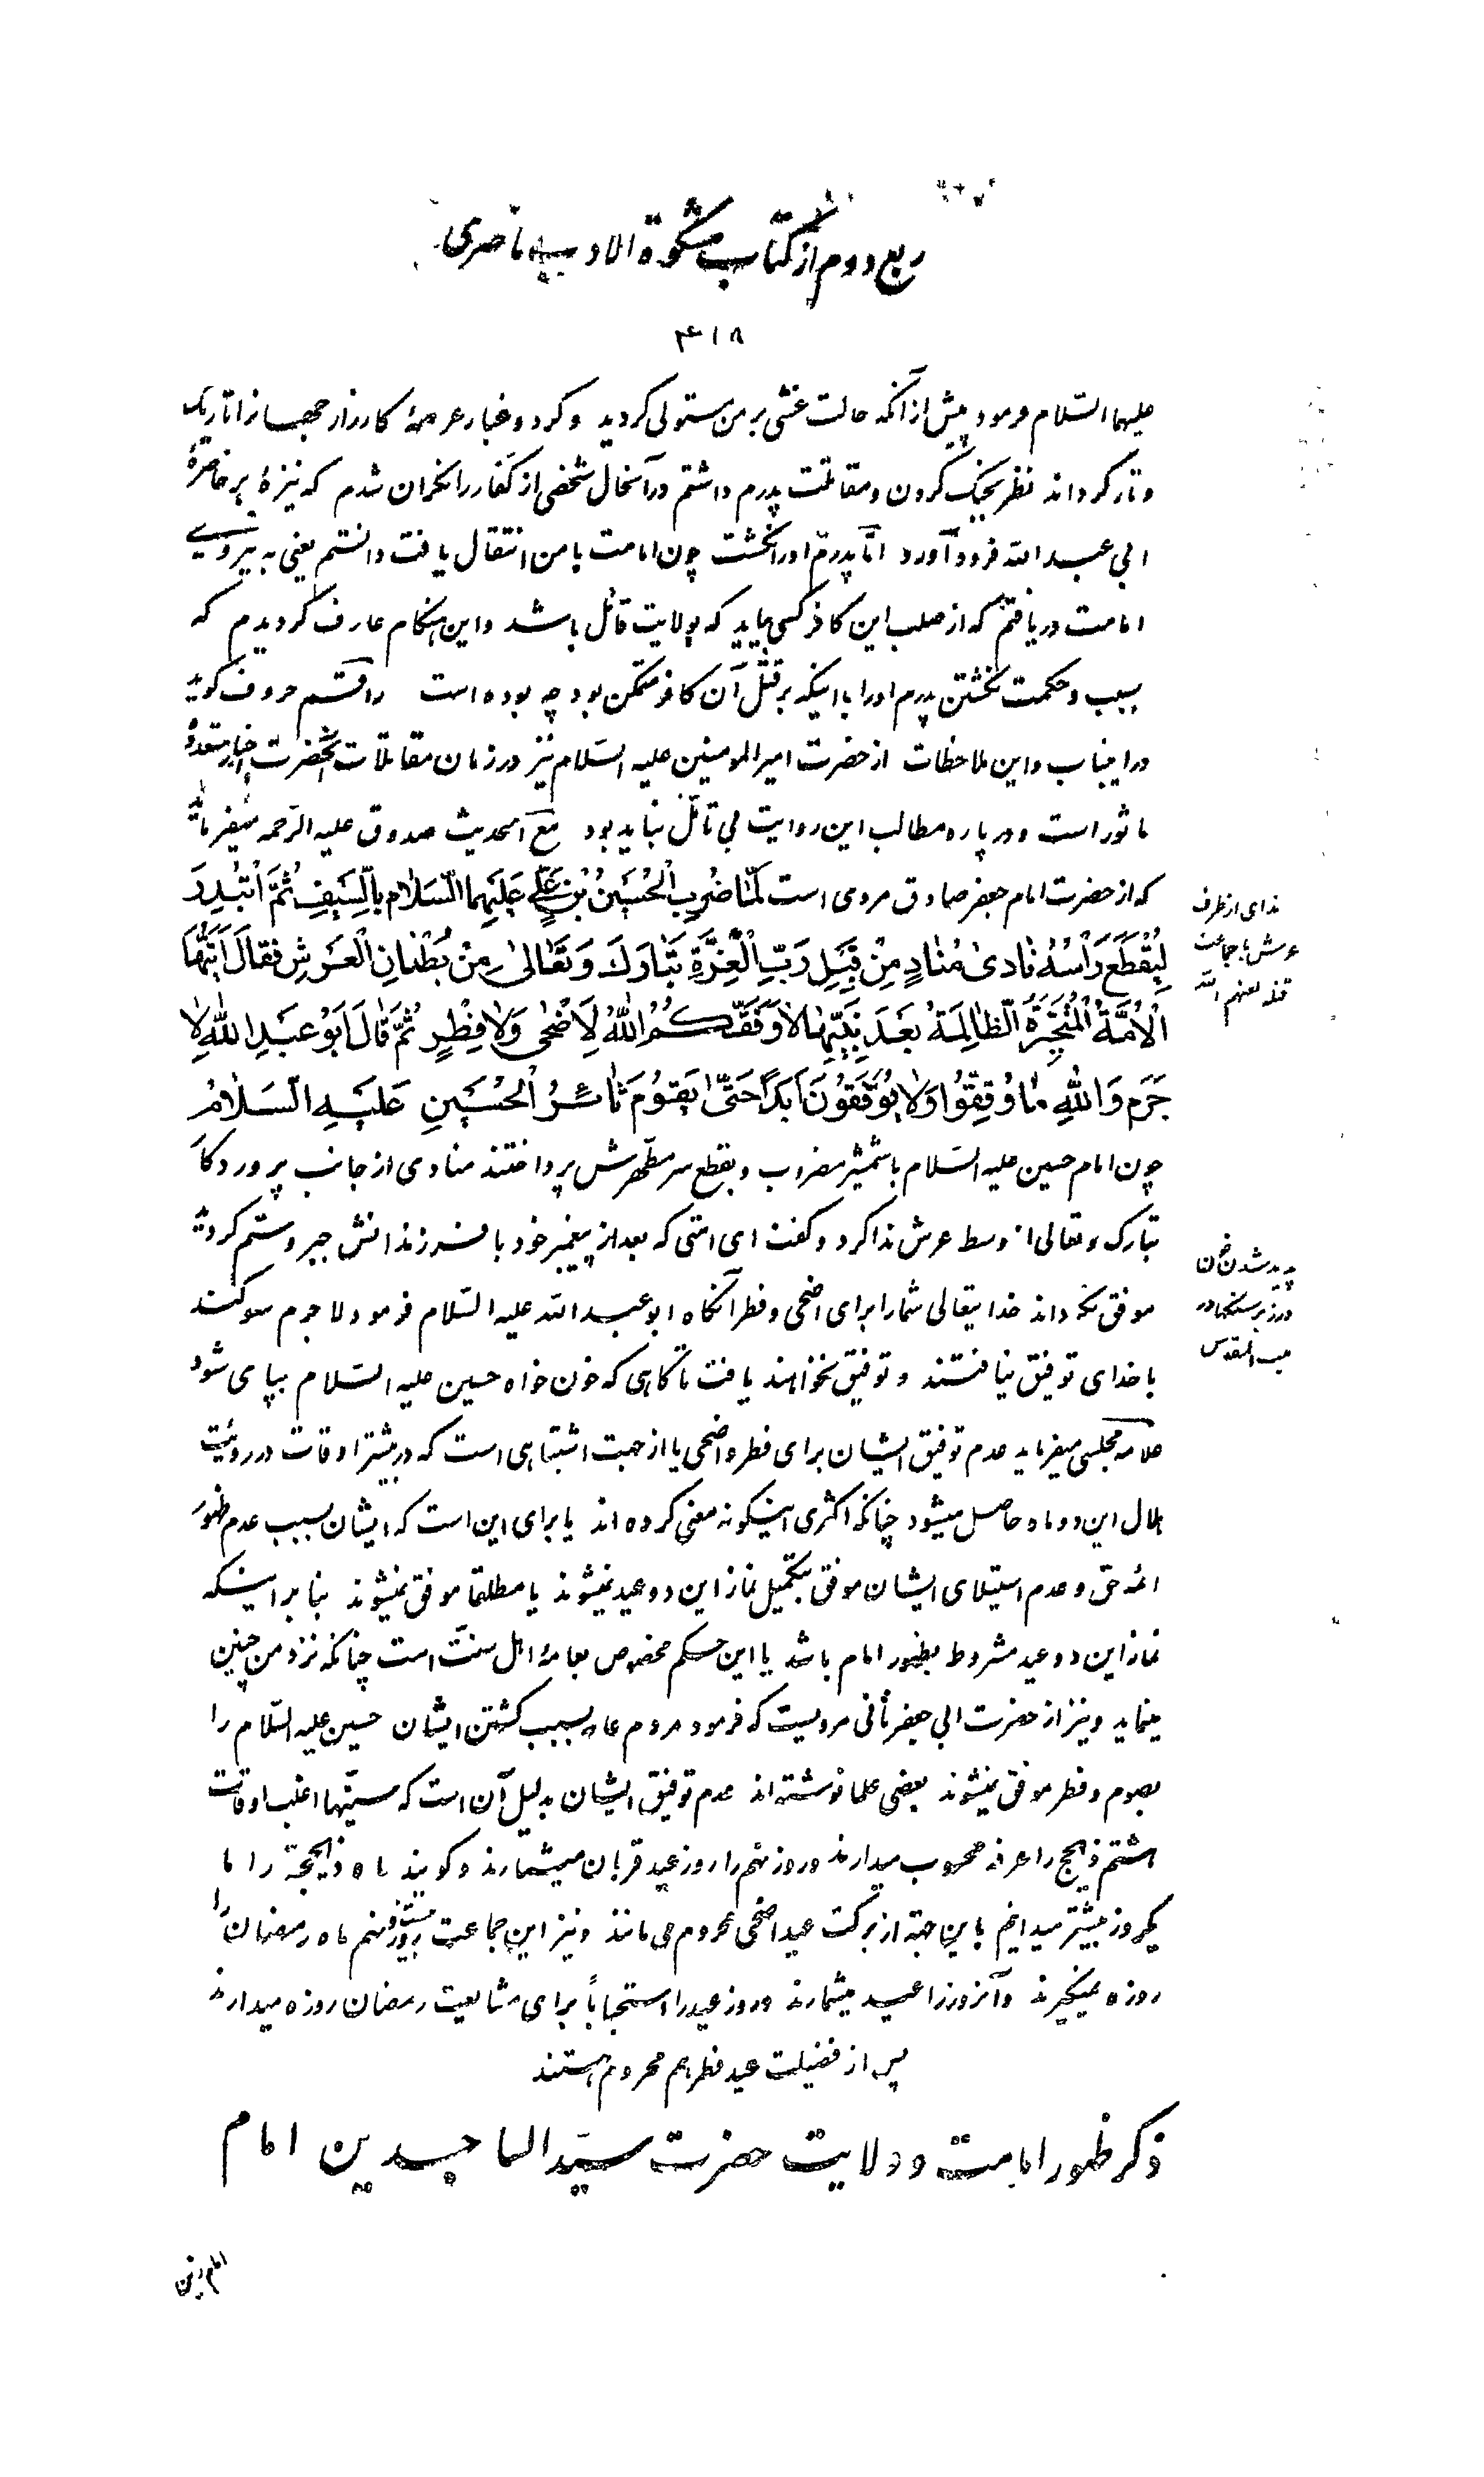 ربع دوم از کتاب مشکوة الادب ناصری
۴۱۸
علیهما السّلام فرمود پیش از آنکه حالت غشی بر من مستولی گردید و گرد و غبار عرصهٔ کارزار جهانرا تاریک
و تار گرداند نظر بجنگ کردن و مقاتلت پدرم داشتم در آنحال شخصی از کفار را نگران شدم که نیزهٔ بر خاصرهٔ
ابی عبد الله فرود آورد امّا پدرم او را نکشت چون امامت با من انتقال یافت دانستم یعنی به نیروی
امامت دریافتم که از صلب این کافر کسی بیاید که بولایت قائل باشد و این هنگام عارف گردیدم که
سبب و حکمت نکشتن پدرم او را با اینکه بر قتل آن کافر متمکن بود چه بوده است راقم حروف گوید
در اینباب و این ملاحظات از حضرت امیر المومنین علیه السّلام نیز در زمان مقاتلات آنحضرت اخبار متعدده
ماثور است و در باره مطالب این روایت بی تأمّل نباید بود مع الحدیث صدوق علیه الرّحمه میفرماید
که از حضرت امام جعفر صادق مروی است لَمّا ضُرِبَ الْحُسَیْنُ بْنُ عَلِیٍّ عَلَیْهِما السَّلامُ بِالسَّیْفِ ثُمَّ ابْتُدِرَ
لِیُقْطَعَ رَأسُهُ نادی مُنادٍ مِنْ قِبَلِ رَبِّ الْعِزَّةِ تَبارَكَ وَ تَعالی مِنْ بُطْنانِ الْعَرْشِ فَقالَ اَیَّتُهَا
الْاُمَّةُ الْمُتَجَبِّرَةُ الظّالِمَةُ بَعْدَ نَبِیِّها لاوَفَّقَکُمُ اللهُ لِاَضْحی وَلافِطْرٍ ثُمَّ قالَ اَبُو عَبْدِ اللهِ لا
جَرَمَ وَاللهِ ما وُفِّقُوا وَلا یُوَفَّقُونَ اَبَداً حَتّی یَقُومَ ثائِرُ الْحُسَیْنِ عَلَیْهِ السَّلامُ
چون امام حسین علیه السّلام با شمشیر مضروب و بقطع سر مطهرش پرداختند منادی از جانب پروردگار
تبارک و تعالی از وسط عرش ندا کرد و گفت ای امتی که بعد از پیغمبر خود با فرزندانش جبر و ستم کردید
موفق نگرداند خدایتعالی شما را برای اضحی و فطر آنگاه ابو عبد الله علیه السّلام فرمود لاجرم سوگند
با خدای توفیق نیافتند و توفیق نخواهند یافت تا گاهی که خون خواه حسین علیه السّلام بپای شود
علامه مجلسی میفرماید عدم توفیق ایشان برای فطر و اضحی یا از جهت اشتباهی است که در بیشتر اوقات در رویئت
هلال این دو ماه حاصل میشود چنانکه اکثری اینگونه معنی کرده اند یا برای این است که ایشان بسبب عدم ظهور
ائمه حق و عدم استیلای ایشان موفق بتکمیل نماز این دو عید نمیشوند یا مطلقا موفق نمیشوند بنا بر اینکه
نماز این دو عید مشروط بظهور امام باشد یا این حکم مخصوص بعامهٔ اهل سنت است چنانکه نزد من چنین
مینماید و نیز از حضرت ابی جعفر ثانی مرویست که فرمود مردم عامه بسبب کشتن ایشان حسین علیه السّلام را
بصوم و فطر موفق نمیشوند بعضی علما نوشته اند عدم توفیق ایشان بدلیل آن است که سنیها اغلب اوقات
هشتم ذیحج را عرفه محسوب میدارند و روز نهم را روز عید قربان میشمارند و گویند ماه ذیحجّه را ما
یکروز بیشتر میدانیم باین جهة از برکت عید اضحی محروم می مانند و نیز این جماعت روز بیست و نهم ماه رمضان را
روزه نمیگیرند و آنروز را عید میشمارند و روز عید را استحباباً برای مشایعت رمضان روزه میدارند
پس از فضیلت عید فطر هم محروم هستند
ذکر ظهور امامت و ولایت حضرت سید الساجدین امام
ندای از طرف
عرش با جماعت
قتله لعنهم الله
پدید شدن خون
در زیر سنگها در
بیت المقدس